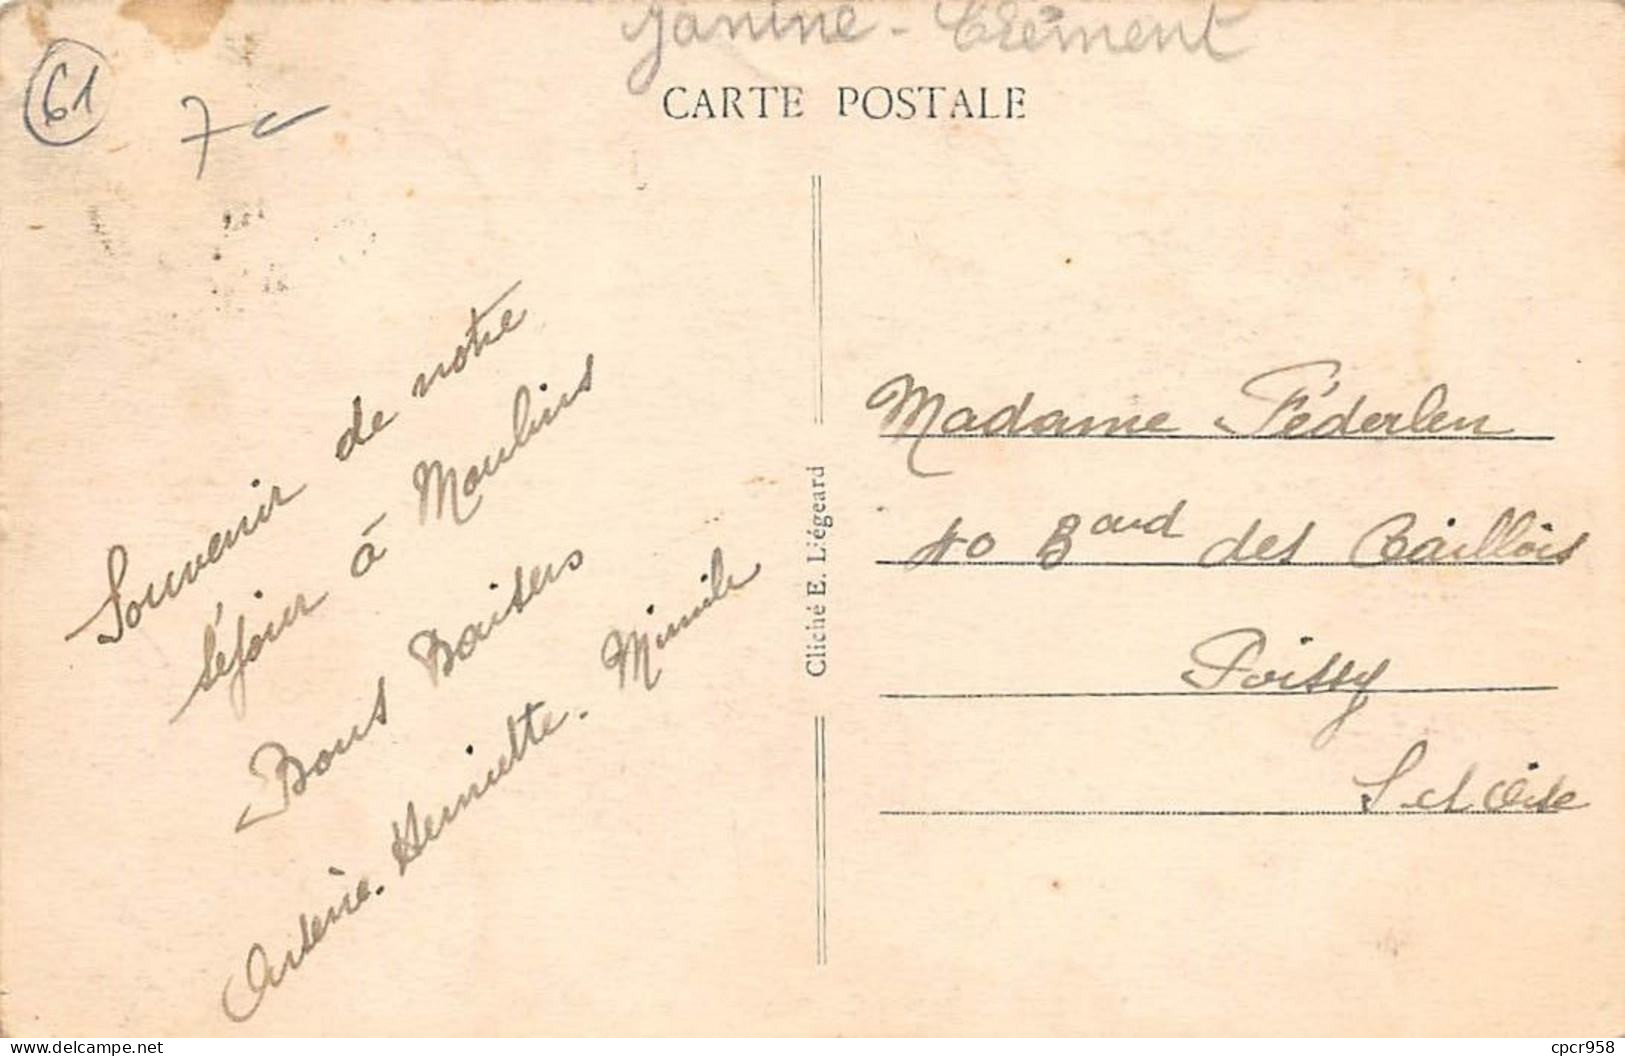 Janine - Clément
CARTE POSTALE
61
7
Souvenir de notre
séjour à Moulins
Bons Baisers
Arsène. Henriette. Mimile
Cliché E. Liégeard
Madame Féderlen
40 Bard des Caillois
Poissy
S et Oise
cpcr958